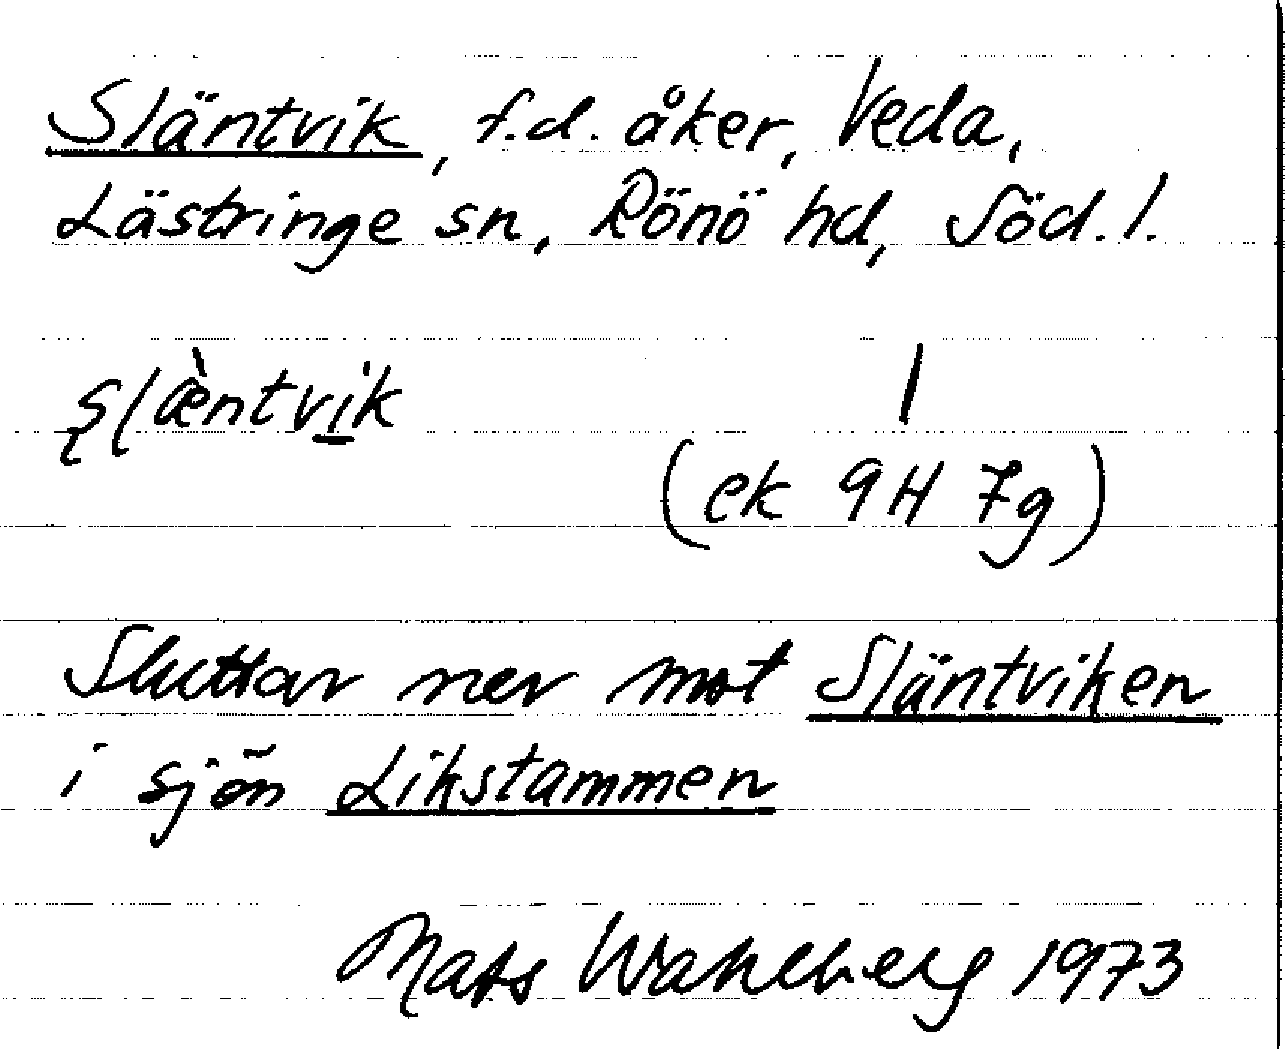 Släntvik, f.d. åker, Veda,
Lästringe sn, Rönö hd, Söd. l.
ʂɭæ̀ntvi̲k
1
(ek 9H 7g)
Sluttar ner mot Släntviken
i sjön Likstammen
Mats Wahlberg 1973